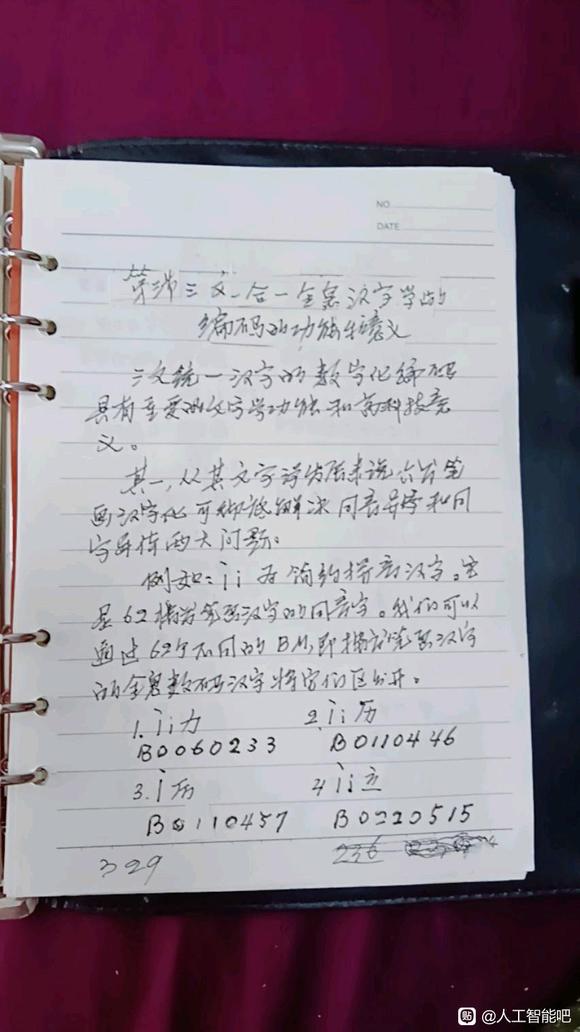 NO
DATE
第三节 三文一合一全息汉字学的
编码的功能和意义
三文统一汉字的数字化编码
具有重要的文字学功能和高科技意
义。
其一,从其文字学发展来说
画汉字化可彻底解决同音异字和同
字异体两大问题。
例如:ìi 为简约拼音汉字。它
是62 汉字的同音字。我们可以
通过62个不同的BM,即 汉字
的全息数码汉字将它们区分开。
1. ìi力 2. ìi历
B0060233 B0110446
3. ì历 4. ìi立
B0110457 B0220515
329 236
贴 @人工智能吧